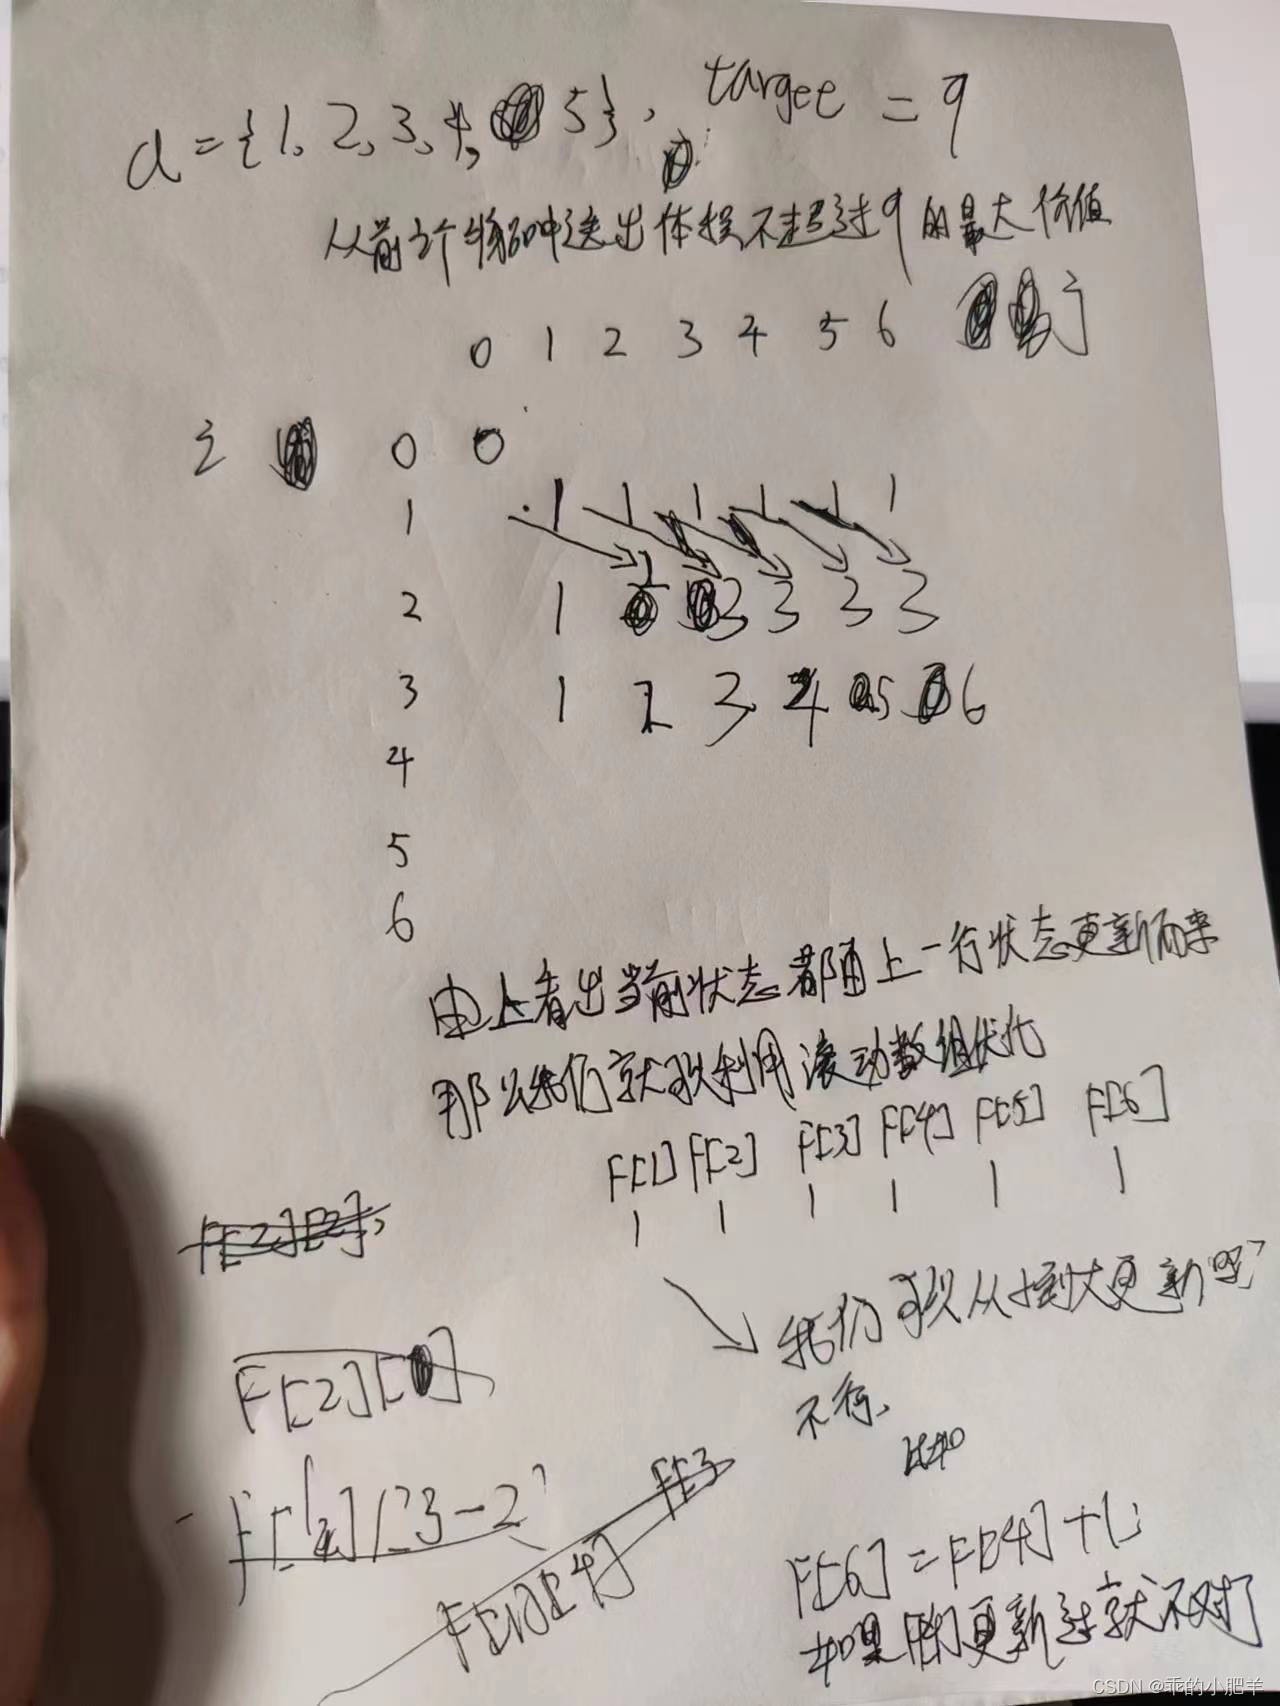 a={1,2,3,4, 5}, targee = 9
从前i个物品中选出体积不超过9的最大价值
0 1 2 3 4 5 6 j
i 0 0
1 1 1 1 1 1 1
2 1 3 3 3 3
3 1 2 3 4 5 6
4
5
6
由上看出当前状态都由上一行状态更新而来
那么我们就可以利用滚动数组优化
F[1] F[2] F[3] F[4] F[5] F[6]
1 1 1 1 1 1
F[2][2],
我们可以从小到大更新呢?
F[2][ ]
不行、
比如
F[ ] [3-2]
F[3
F[1][4]
F[6] = F[4] +
如果F[4]更新过就不对了
CSDN @乖的小肥羊